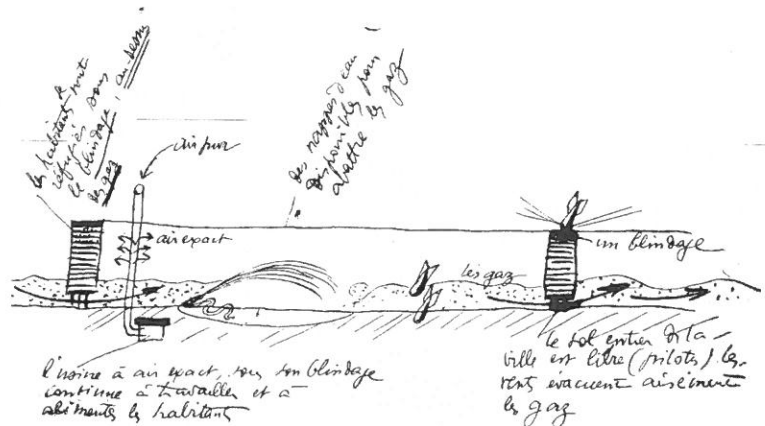 les habitants sont
réfugiés sous
le blindage, au-dessus
des gaz
air pur
des nappes d'eau
disponibles pour
abattre les gaz
air exact
un blindage
les gaz
l'usine à air exact, sous son blindage
continue à travailler et à
alimenter les habitants
le sol entier de la
ville est libre (pilotis) les
vents évacuent aisément
les gaz